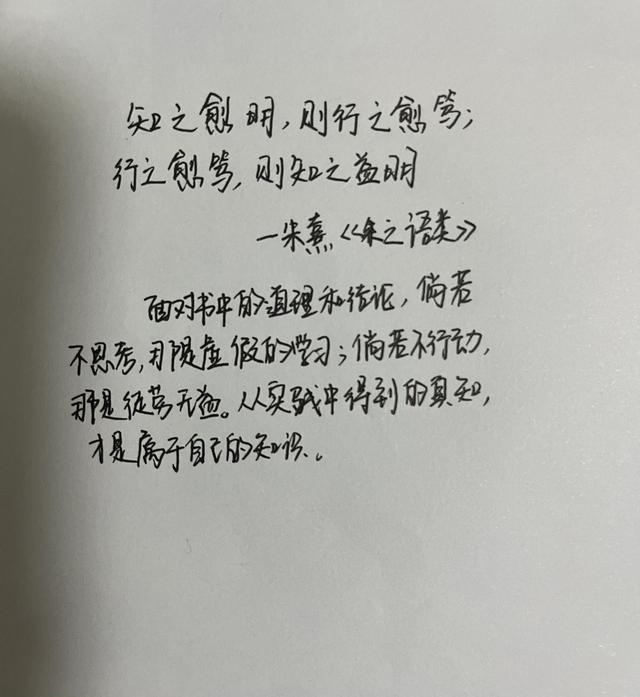 知之愈明，则行之愈笃；
行之愈笃，则知之益明
—朱熹《朱之语类》
面对书中的道理和结论，倘若
不思考，那是虚假的学习；倘若不行动，
那是徒劳无益。从实践中得到的真知，
才是属于自己的知识。